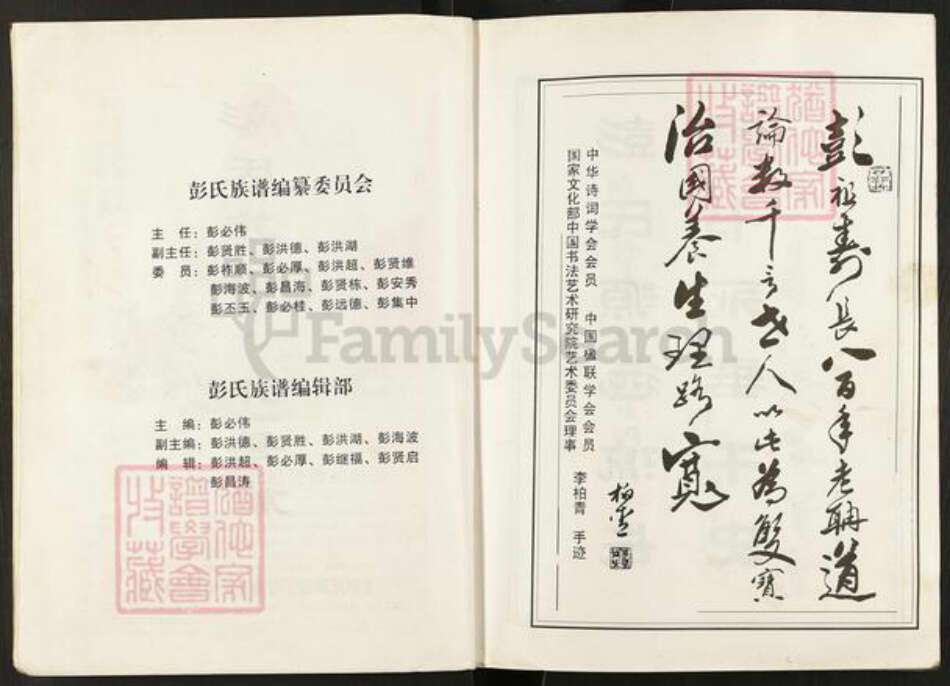 彭氏族谱编纂委员会
主　任：彭必伟
副主任：彭贤胜、彭洪德、彭洪湖
委　员：彭祚顺、彭必厚、彭洪超、彭贤维
彭海波、彭昌海、彭贤栋、彭安秀
彭丕玉、彭必桂、彭远德、彭集中
彭氏族谱编辑部
主　编：彭必伟
副主编：彭洪德、彭贤胜、彭洪湖、彭海波
编　辑：彭洪超、彭必厚、彭继福、彭贤启
彭昌涛
FamilySearch
彭祖寿长八百年老聃道
論数千言世人以此為雙寳
治國養生理路寬
柏青
中华诗词学会会员　中国楹联学会会员
国家文化部中国书法艺术研究院艺术委员会理事
李柏青　手迹
譜學會
收藏